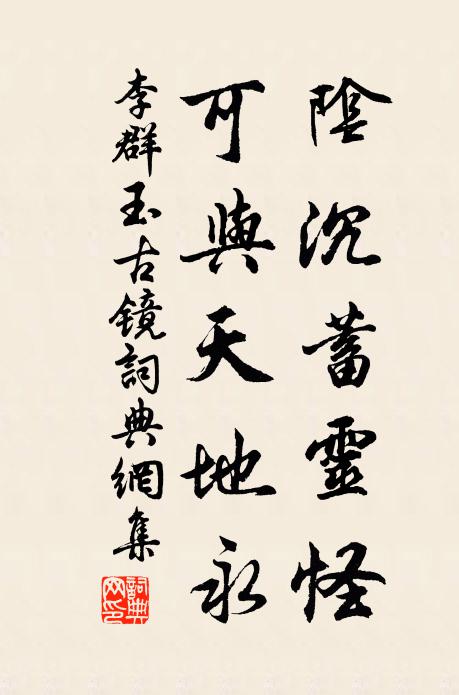 陰沉蓄靈怪
可與天地永
李群玉古鏡詞典網集
詞典網印